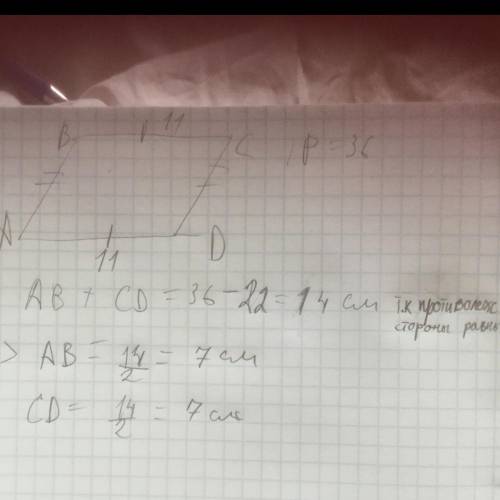 B 11 C P = 36
A 11 D
AB + CD = 36 - 22 = 14 см т.к противолеж
стороны равны
> AB = 14/2 = 7 см
CD = 14/2 = 7 см